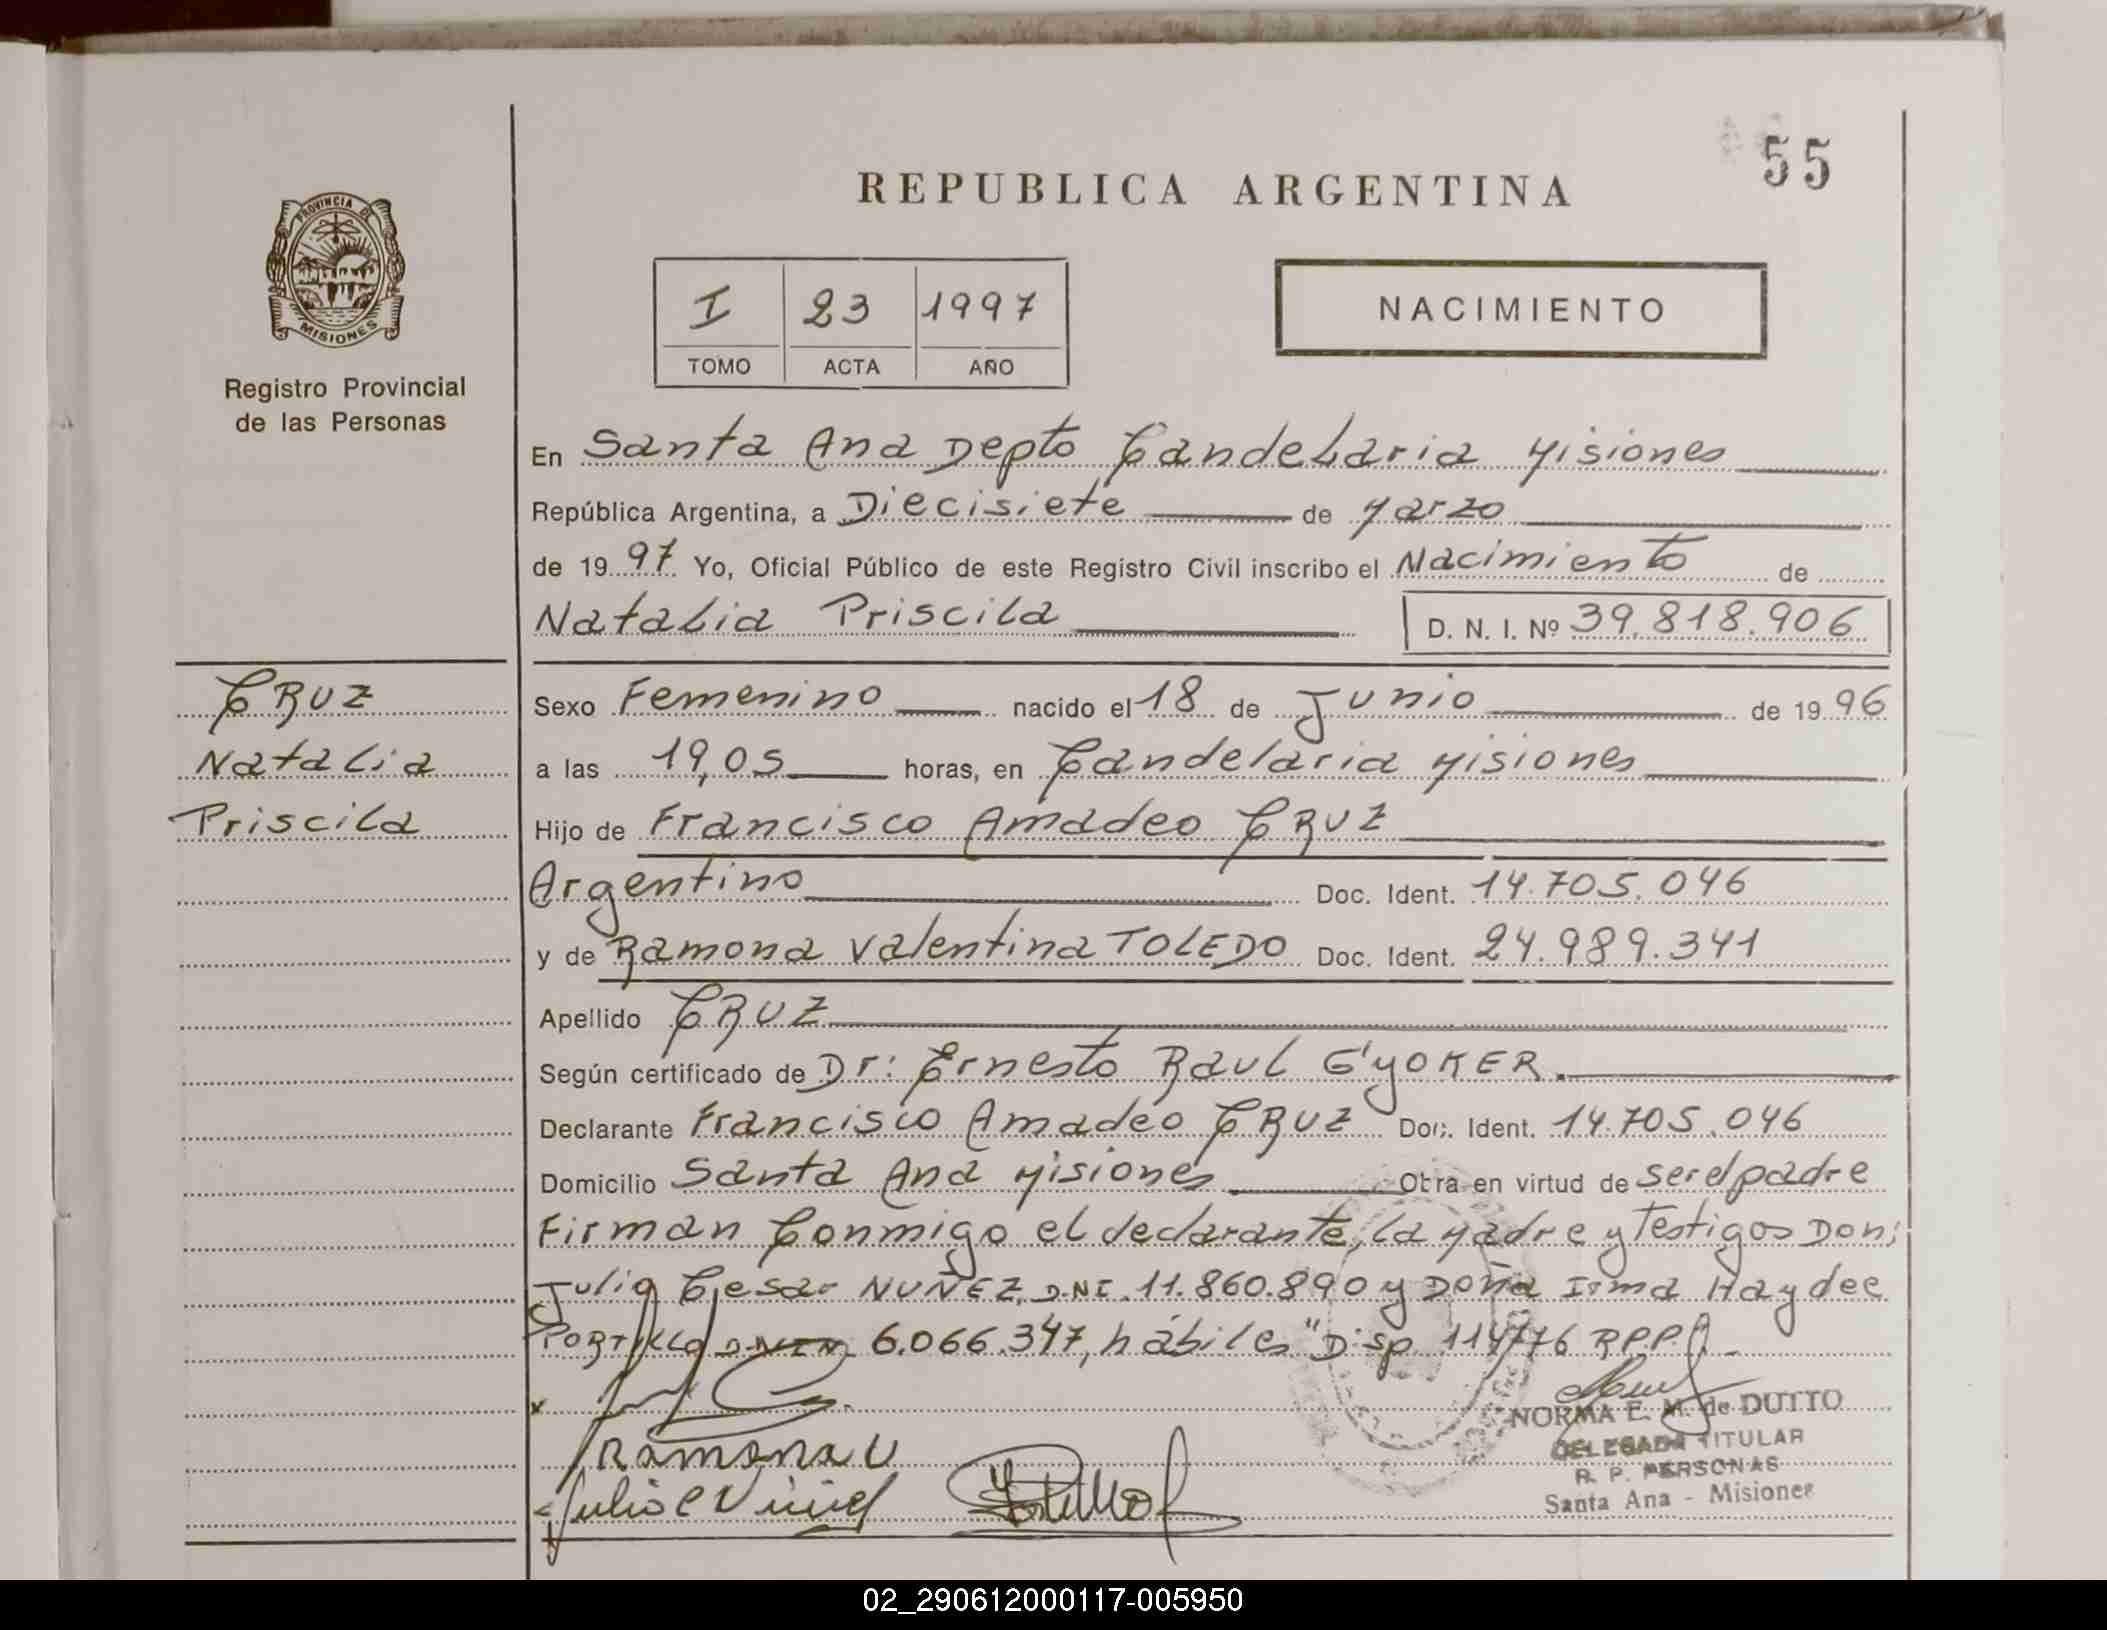 55
REPUBLICA ARGENTINA
PROVINCIA DE
MISIONES
Registro Provincial
de las Personas
I 23 1997
TOMO ACTA AÑO
NACIMIENTO
En Santa Ana Depto Candelaria Misiones
República Argentina, a Diecisiete de Marzo
de 1997 Yo, Oficial Público de este Registro Civil inscribo el Nacimiento de
Natalia Priscila D. N. I. Nº 39.818.906
CRUZ
Natalia
Priscila
Sexo Femenino nacido el 18 de Junio de 1996
a las 19,05 horas, en Candelaria Misiones
Hijo de Francisco Amadeo CRUZ
Argentino Doc. Ident. 14.705.046
y de Ramona Valentina TOLEDO Doc. Ident. 24.989.341
Apellido CRUZ
Según certificado de Dr: Ernesto Raul G'YOKER
Declarante Francisco Amadeo CRUZ Doc. Ident. 14.705.046
Domicilio Santa Ana Misiones Obra en virtud de ser el padre
Firman Conmigo el declarante, la Madre y Testigos Don;
Julio Cesar NUÑEZ, D.N.I. 11.860.890 y Doña Irma Haydee
PORTILLO 6.066.347, hábiles "Disp. 114/76 R.P.P.
Ramona V
Julio C
NORMA E. M. de DUTTO
DELEGADA TITULAR
R. P. PERSONAS
Santa Ana - Misiones
02_290612000117-005950